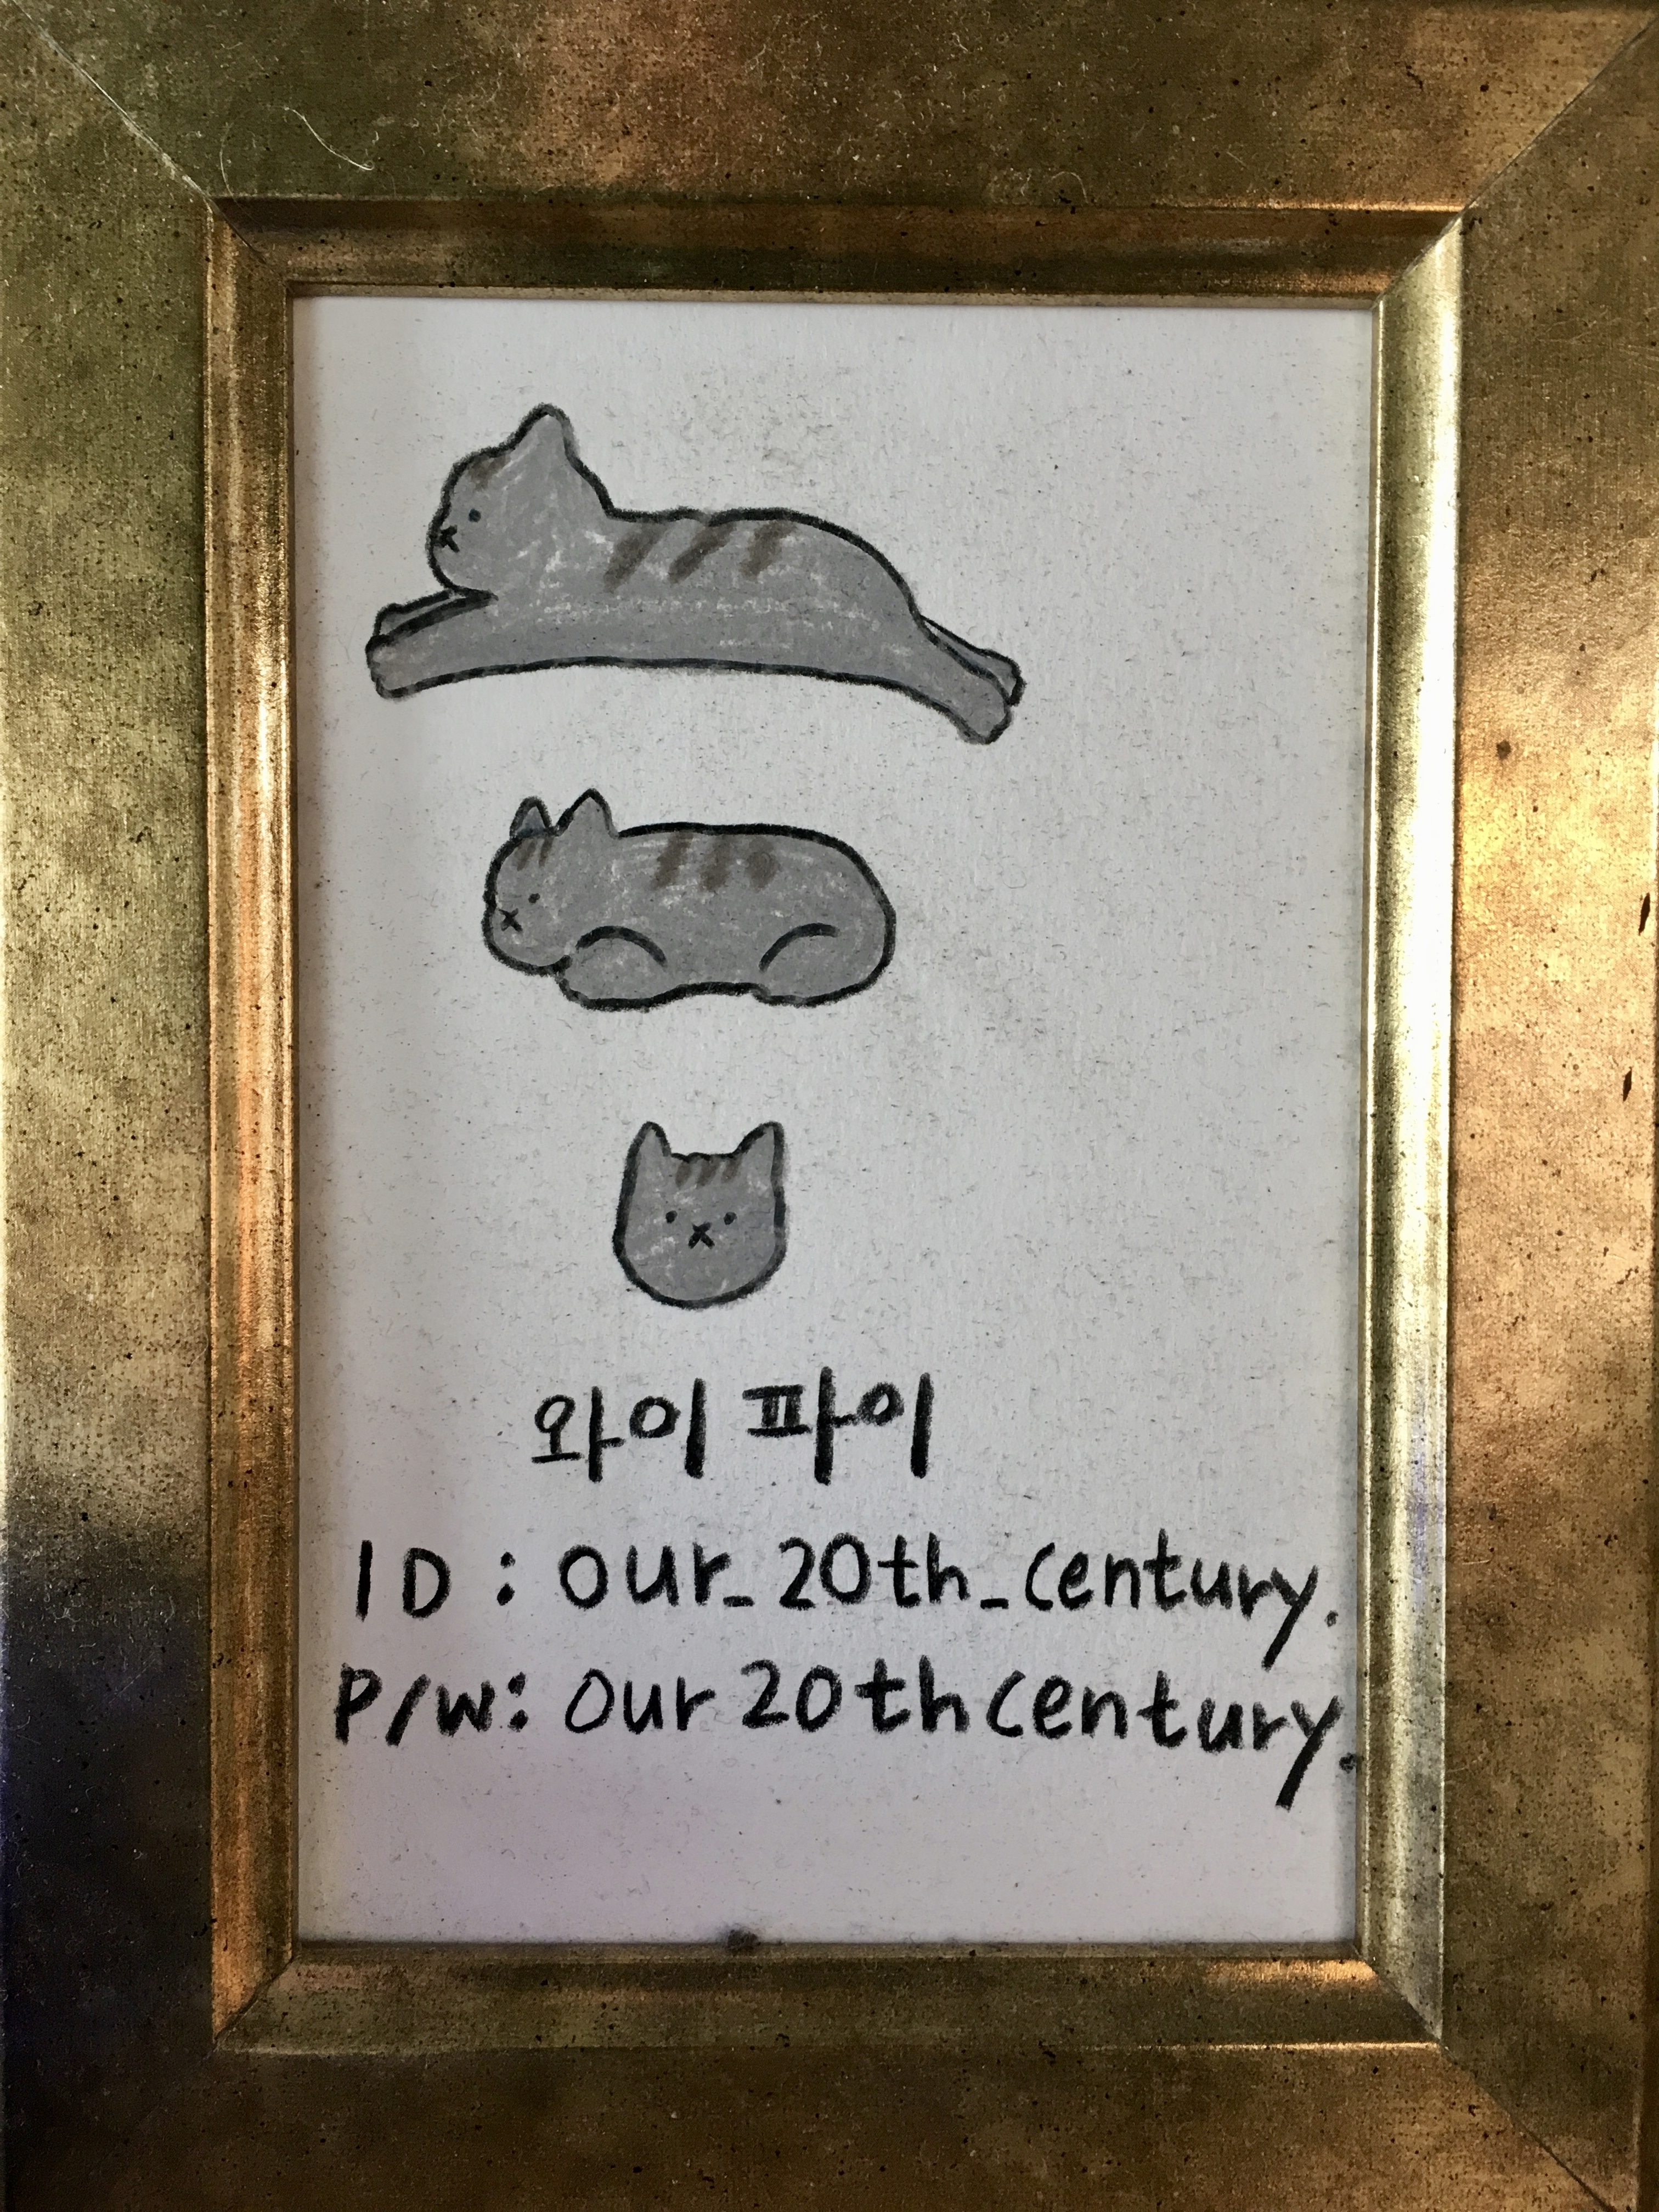 와이파이
ID : our_20th_century.
P/W: Our 20th century.